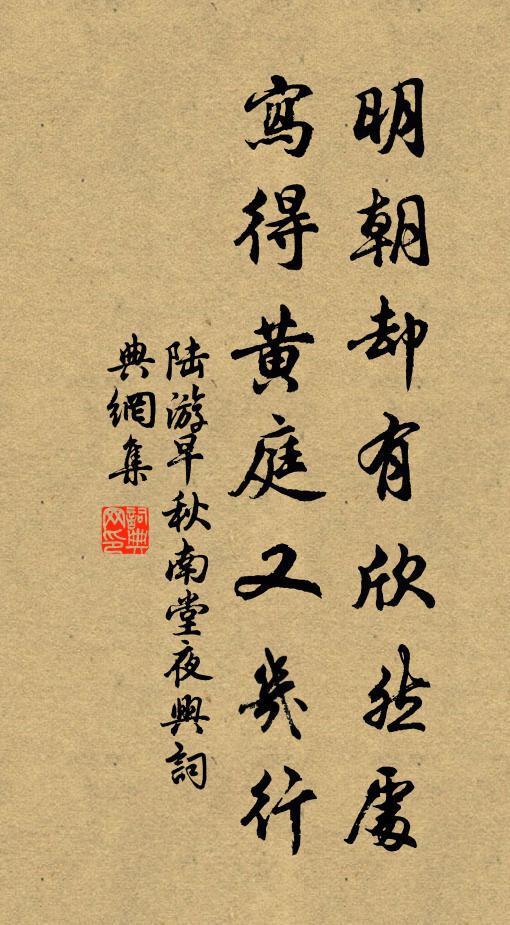 明朝却有欣然處
寫得黃庭又幾行
陆游早秋南堂夜興詞
典網集
詞典網印